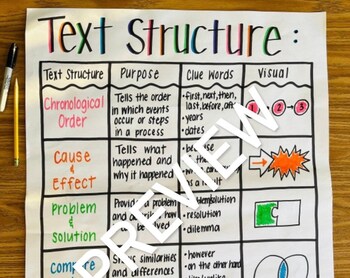 Text Structure:
Text Structure Purpose Clue Words Visual
Chronological
Order
Tells the order
in which events
occur or steps
in a process
• first, next, then,
last, before, after
• years
• dates
1 → 2 → 3
Cause
&
Effect
Tells what
happened and
why it happened
• because
as a result
Problem
&
Solution
and
be solved
solution
• resolution
• dilemma
Compare
similarities
and differences
• however
• on the other hand
PREVIEW